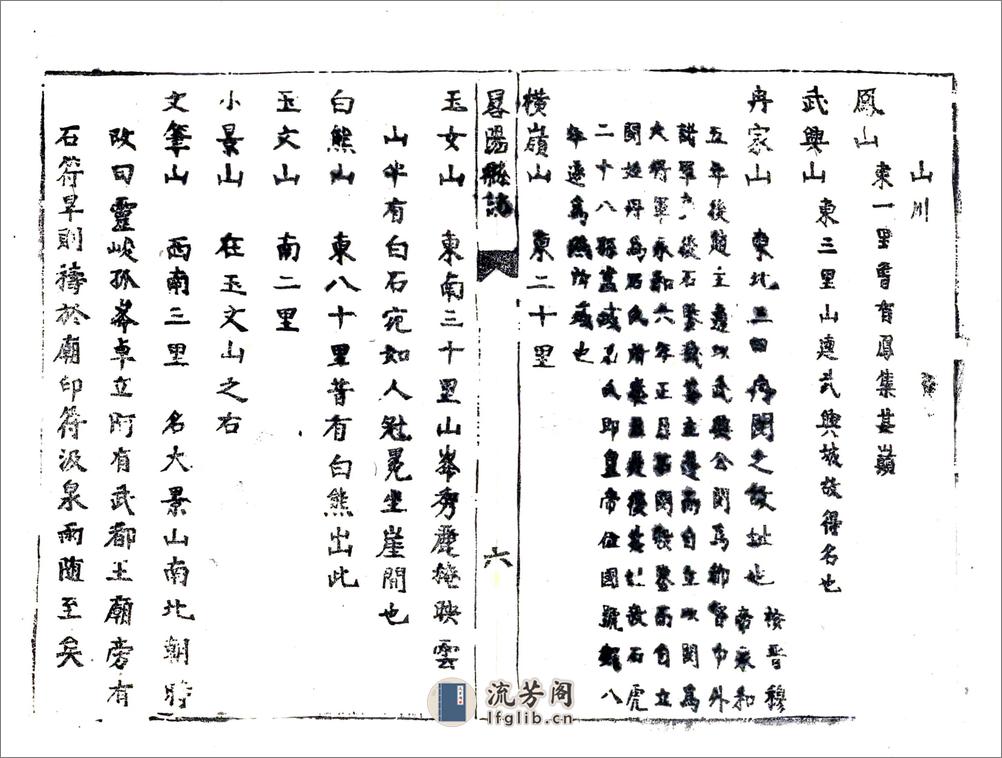 山川
鳳山 東一里曾有鳳集其巔
武興山 東三里山連武興城故得名也
冉家山 東北三 冉閔之故址也 按晉穆帝永和
五年後趙主遵以武興公閔為都督中外
諸軍 後石鑒 主遵而自立以閔為
大將軍永和六年正月 閔 鑒而自立
閔姓冉為石氏所 石虎
二十八孫 石氏即皇帝位國號魏八
年遂為燕所 也
橫嶺山 東二十里
畧陽縣誌
六
玉女山 東南三十里山峯秀麗掩映雲
山半有白石宛如人冠冕坐崖間也
白熊山 東八十里昔有白熊出此
玉文山 南二里
小景山 在玉文山之右
文筆山 西南三里 名大景山南北朝時
改曰靈峻孤峯卓立阿有武都王廟旁有
石符旱則禱於廟印符汲泉雨随至矣
流芳阁
lfglib.cn